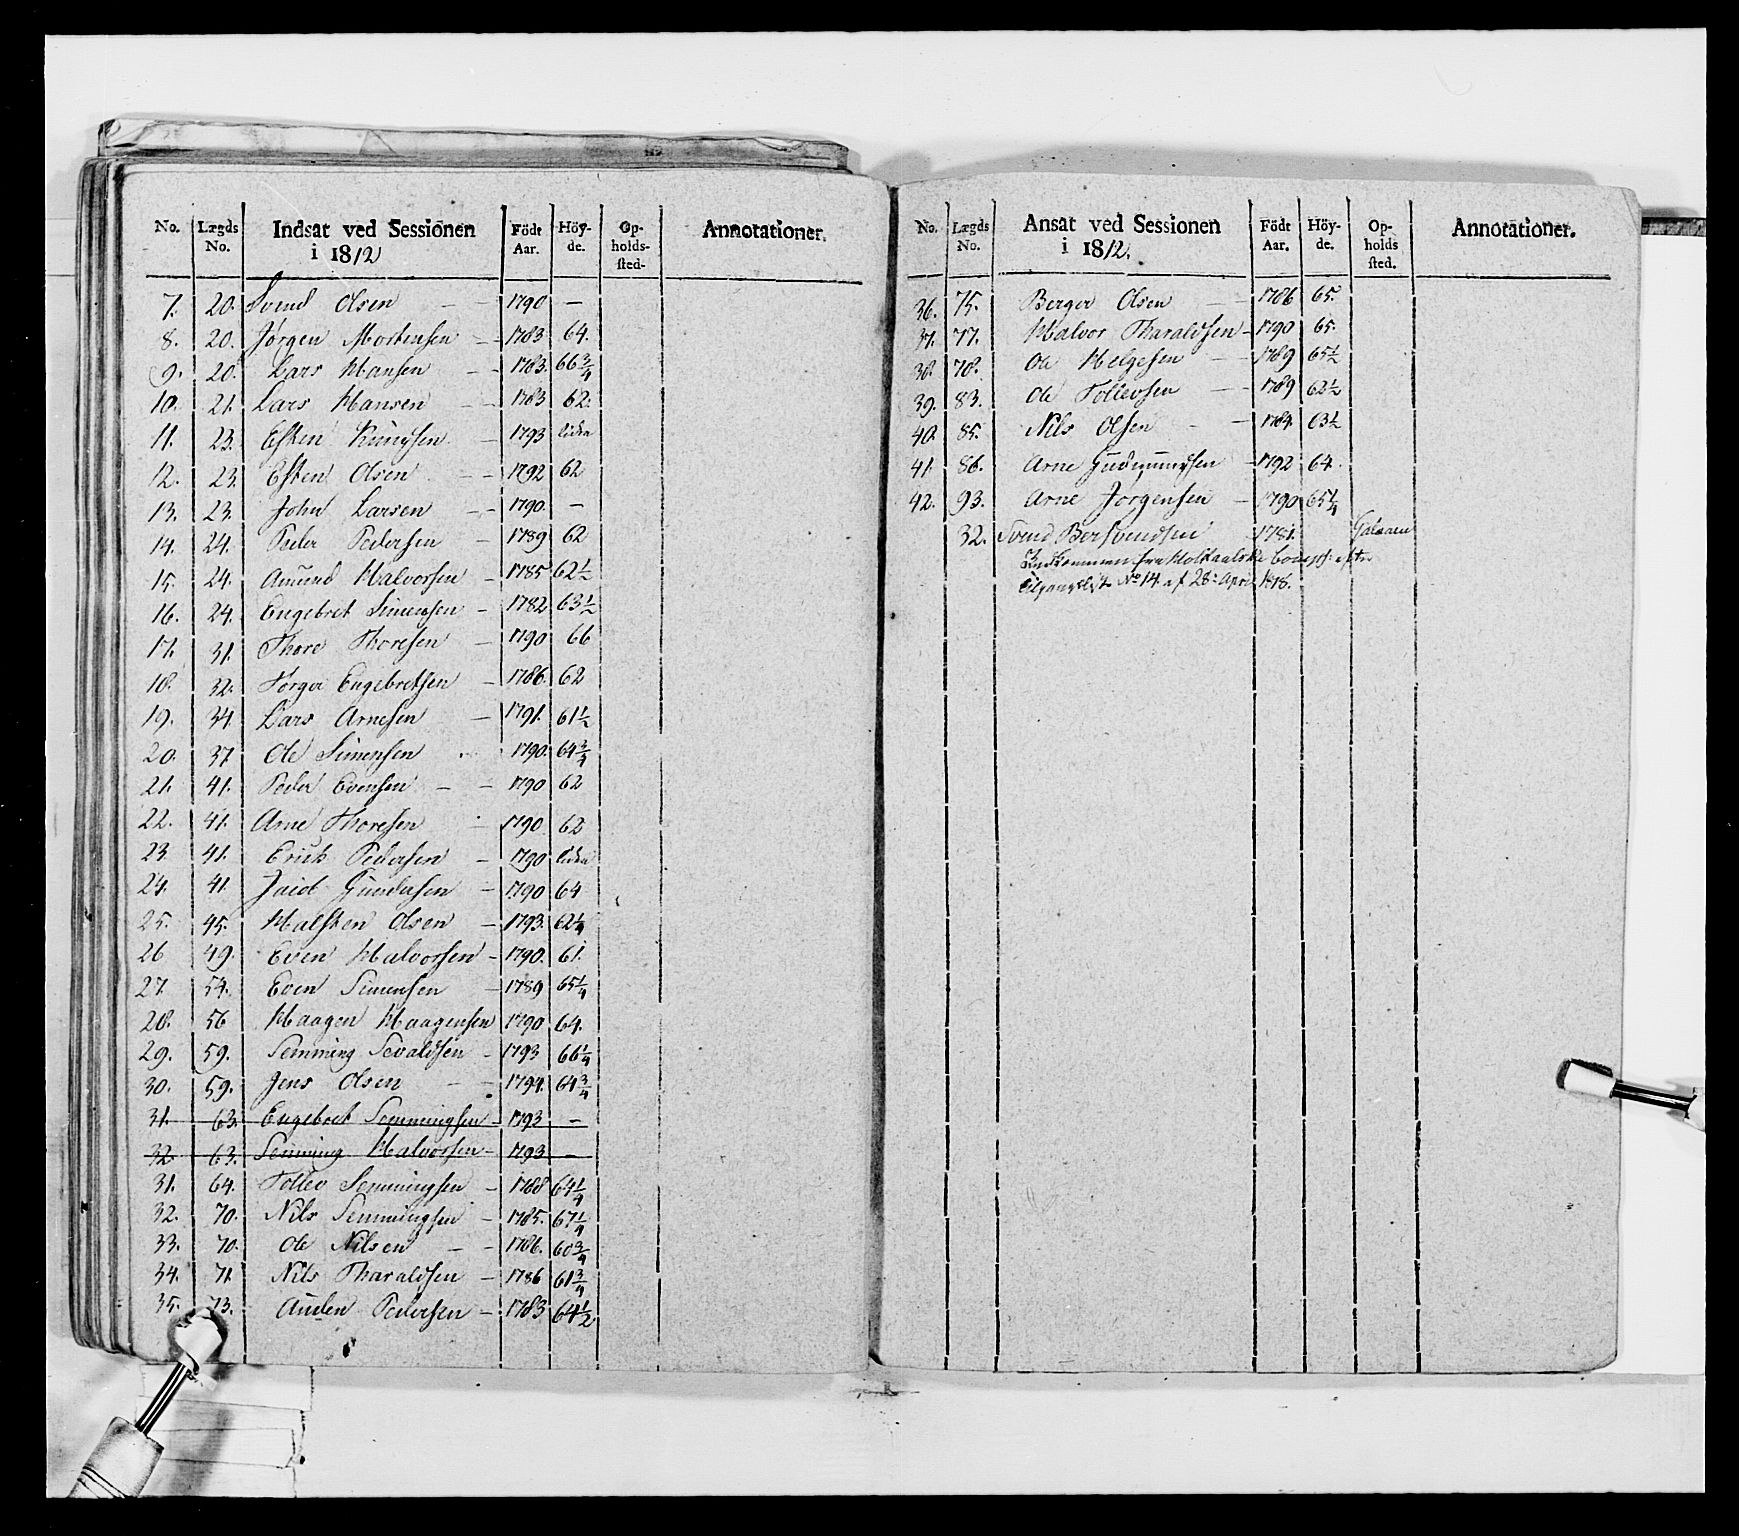 No. Lægds No. Indsat ved Sessionen i 1812 Födt Aar. Höyde. Opholdssted- Annotationer.
7. 20. Svend Olsen — — 1790 —
8. 20. Jørgen Mortensen — 1783 64.
9. 20. Lars Hansen — 1783. 66 3/4
10. 21. Lars Hansen — 1783 62.
11. 23. Esken Knudsen — 1793 liden
12. 23. Esken Olsen — — 1792 62
13. 23. John Larsen — 1790. —
14. 24. Peder Pedersen — 1789 62
15. 24. Amund Halvorsen — 1785 62 1/2
16. 24. Engebret Simensen — 1782 63 1/2
17. 31. Thore Thoresen — 1790 66
18. 32. Torger Engebretsen — 1786. 62
19. 34. Lars Arnesen — 1791. 61 1/2
20. 37 Ole Simensen 1790. 64 3/4
21. 41. Peder Evensen — — 1790 62
22. 41. Arne Thoresen — 1790 62
23. 41. Erick Pedersen — 1790 liden
24. 41. Gundersen — 1790 64
25. 45. Halsten Olsen — 1793. 62 1/4
26 49. Even Halvorsen — 1790. 61.
27. 54. Even Simensen — 1789 65 1/4
28. 56 Haagen Haagensen 1790 64.
29. 59. Semming Sevaldsen — 1793 66 1/4
30. 59. Jens Olsen — — 1794. 64 3/4
31. 63. Engebret Semmingsen — 1793 —
32. 63. Semming Halvorsen — 1793 —
31. 64. Tollev Semmingsen — 1788 64 1/4
32. 70. Nils Semmingsen — 1785. 67 1/4
33. 70. Ole Nilsen — — 1786. 60 3/4
34. 71. Nils Tharaldsen — 1786 61 3/4
35. 73. Auden Pedersen — 1783 64 1/2
No. Lægds No. Ansat ved Sessionen i 1812. Födt Aar. Höyde. Opholds sted. Annotationer.
36. 75. Berger Olsen — — 1786 65.
37. 77. Halvor Tharaldsen — 1790 65.
38. 78. Ole Helgesen — — 1789 65 1/2
39. 83. Ole Tollevsen — — 1789 62 1/2
40. 85. Nils Olsen — — 1784. 63 1/2
41. 86. Arne Gudmundsen — 1792 64.
42. 93. Arne Jørgensen — 1790 65 1/4
32. Svend Bersvendsen 1781.
Indkommen fra Holtaalske efter
No 14. af 28de April 1818.